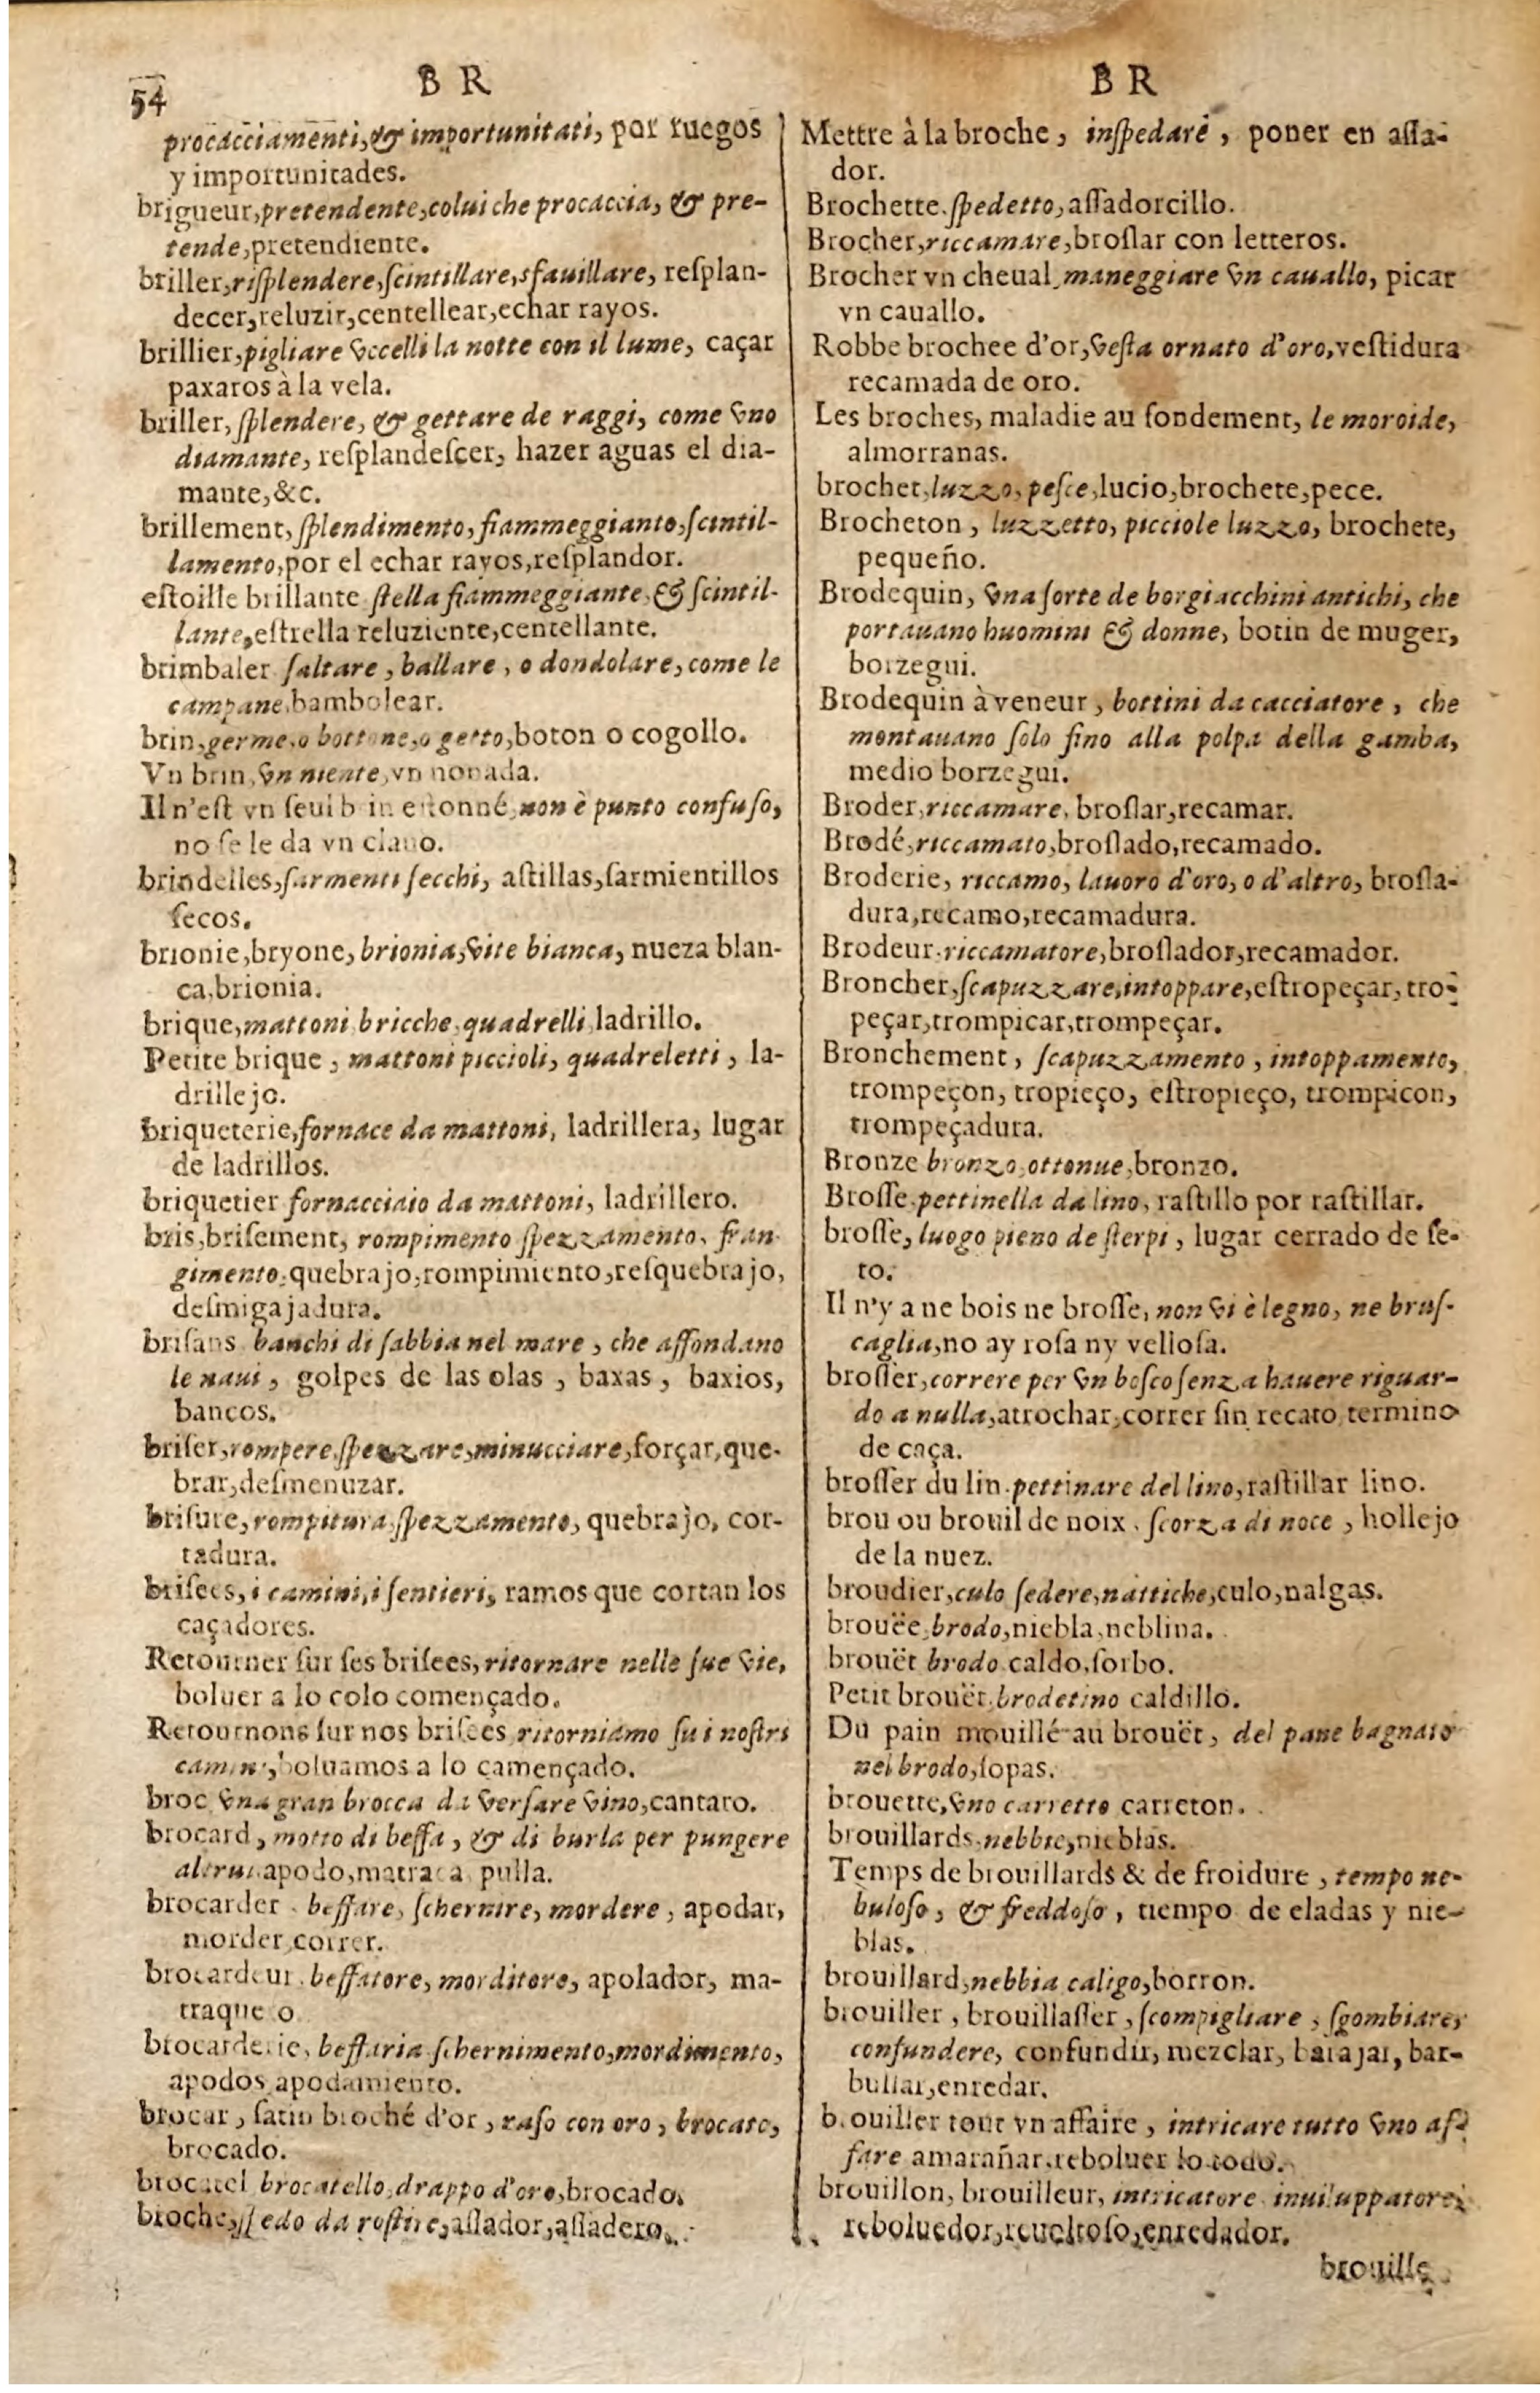 54
B R
B R
procacciamenti,& importunitati, por ruegos
y importunitades.
brigueur,pretendente,colui che procaccia, & pre-
tende,pretendiente.
briller,risplendere,ſcintillare,sfauillare, reſplan-
decer,reluzir,centellear,echar rayos.
brillier,pigliare vccelli la notte con il lume, caçar
paxaros à la vela.
briller, ſplendere, & gettare de raggi, come vno
diamante, reſplandeſcer, hazer aguas el dia-
mante,&c.
brillement, ſplendimento, fiammeggianto,ſcintil-
lamento,por el echar rayos,reſplandor.
eſtoille brillante ſtella fiammeggiante, & ſcintil-
lante,eſtrella reluziente,centellante.
brimbaler ſaltare, ballare, o dondolare, come le
campane,bambolear.
brin,germe,o bottone,o getto,boton o cogollo.
Vn brin,vn niente,vn nonada.
Il n'eſt vn ſeul b in eſtonné,non è punto confuſo,
no ſe le da vn clauo.
brindelles,ſarmenti ſecchi, aſtillas,ſarmientillos
ſecos.
brionie,bryone, brionia,vite bianca, nueza blan-
ca,brionia.
brique,mattoni bricche,quadrelli,ladrillo.
Petite brique, mattoni piccioli, quadreletti, la-
drillejo.
briqueterie,fornace da mattoni, ladrillera, lugar
de ladrillos.
briquetier fornacciaio da mattoni, ladrillero.
bris,briſement, rompimento ſpezzamento, fran-
gimento,quebrajo,rompimiento,reſquebrajo,
deſmigajadura.
briſans banchi di ſabbia nel mare, che affondano
le naui, golpes de las olas, baxas, baxios,
bancos.
briſer,rompere,ſpezzare,minucciare,forçar,que-
brar,deſmenuzar.
briſure,rompitura,ſpezzamento, quebrajo, cor-
tadura.
briſees,i camini,i ſentieri, ramos que cortan los
caçadores.
Retourner ſur ſes briſees,ritornare nelle ſue vie,
boluer a lo colo començado.
Retournons ſur nos briſees ritorniamo ſu i noſtri
camini,boluamos a lo camençado.
broc vna gran brocca da verſare vino,cantaro.
brocard, motto di beffa, & di burla per pungere
altrui apodo,matraca pulla.
brocarder beffare, ſchernire, mordere, apodar,
morder,correr.
brocardeur beffatore, morditore, apolador, ma-
traque o
brocarderie, beffaria ſchernimento,mordimento,
apodos apodamiento.
brocar, ſatin broché d'or, raſo con oro, brocato,
brocado.
brocatel brocatello,drappo d'oro,brocado.
broche,ſpedo da roſtire,aſſador,aſſadero.
Mettre à la broche, inſpedare, poner en aſſa-
dor.
Brochette.ſpedetto,aſſadorcillo.
Brocher,riccamare,broſlar con letteros.
Brocher vn cheual,maneggiare vn cauallo, picar
vn cauallo.
Robbe brochee d'or,veſta ornato d'oro,veſtidura
recamada de oro.
Les broches, maladie au fondement, le moroide,
almorranas.
brochet,luzzo, peſce,lucio,brochete,pece.
Brocheton, luzzetto, picciole luzzo, brochete,
pequeño.
Brodequin, vna ſorte de borgiacchini antichi, che
portauano huomini & donne, botin de muger,
borzegui.
Brodequin à veneur, bottini da cacciatore, che
montauano ſolo fino alla polpa della gamba,
medio borzegui.
Broder,riccamare, broſlar,recamar.
Brodé,riccamato,broſlado,recamado.
Broderie, riccamo, lauoro d'oro, o d'altro, broſla-
dura,recamo,recamadura.
Brodeur.riccamatore,broſlador,recamador.
Broncher,ſcapuzzare,intoppare,eſtropeçar, tro-
peçar,trompicar,trompeçar.
Bronchement, ſcapuzzamento, intoppamento,
trompeçon, tropieço, eſtropieço, trompicon,
trompeçadura.
Bronze bronzo,ottonue,bronzo.
Broſſe,pettinella da lino, raſtillo por raſtillar.
broſſe, luogo pieno de ſterpi, lugar cerrado de ſe-
to.
Il n'y a ne bois ne broſſe, non vi è legno, ne bruſ-
caglia,no ay roſa ny velloſa.
broſſer,correre per vn boſco ſenza hauere riguar-
do a nulla,atrochar,correr ſin recato termino
de caça.
broſſer du lin.pettinare del lino,raſtillar lino.
brou ou brouil de noix. ſcorza di noce, hollejo
de la nuez.
broudier,culo ſedere,nattiche,culo,nalgas.
brouëe,brodo,niebla,neblina.
brouët brodo caldo,ſorbo.
Petit brouët,brodetino caldillo.
Du pain mouillé au brouët, del pane bagnato
nel brodo,ſopas.
brouette,vno carretto carreton.
brouillards,nebbie,nieblas.
Temps de brouillards & de froidure, tempo ne-
buloſo, & freddoſo, tiempo de eladas y nie-
blas.
brouillard,nebbia caligo,borron.
brouiller, brouillaſſer, ſcompigliare, ſgombiare,
confundere, confundir, mezclar, barajar, bar-
bullar,enredar.
brouiller tout vn affaire, intricare tutto vno af-
fare amarañar.reboluer lo todo.
brouillon, brouilleur, intricatore inuiluppatore,
reboluedor,reueltoſo,enredador.
brouille